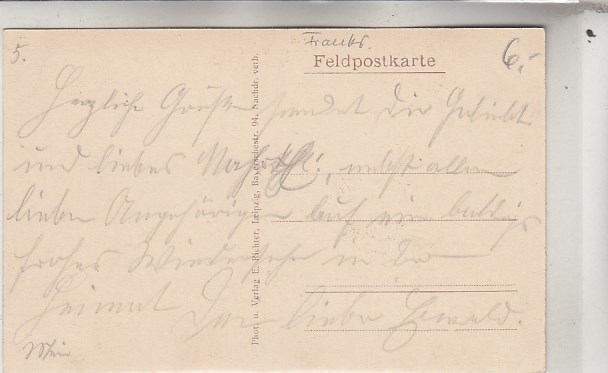 5.
Feldpostkarte
6,-
Herzliche Grüße sendet dir
und liebes nebst allen
lieben Angehörigen Auf ein baldiges
frohes Wiedersehn in der
Heimat Dein lieber Ewald.
Phot. u. Verlag E. Richter, Leipzig, Bayerschestr. 94. Nachdr. verb.